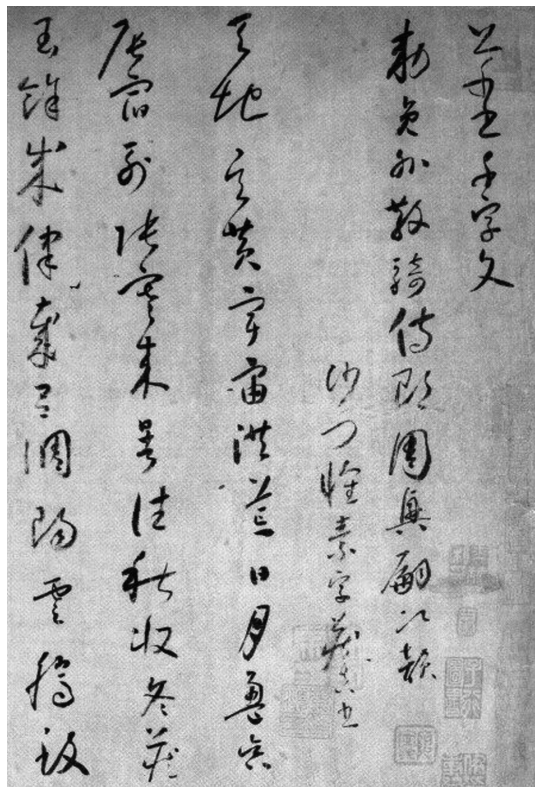 草書千字文
敕員外散騎侍郎周興嗣次韻
沙門懷素字藏真書
天地玄黃宇宙洪荒日月盈昃
辰宿列張寒來暑往秋收冬藏
閏餘成律歲呂調陽雲騰致